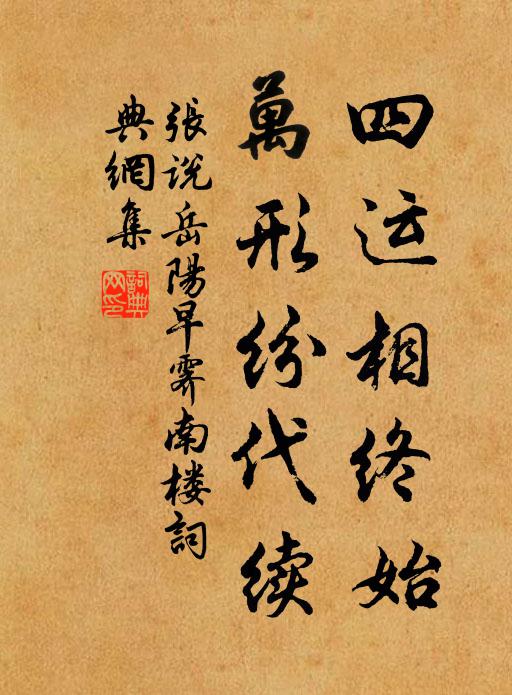 四运相终始
萬形纷代续
張说岳陽早霽南楼詞
典網集
詞典网印